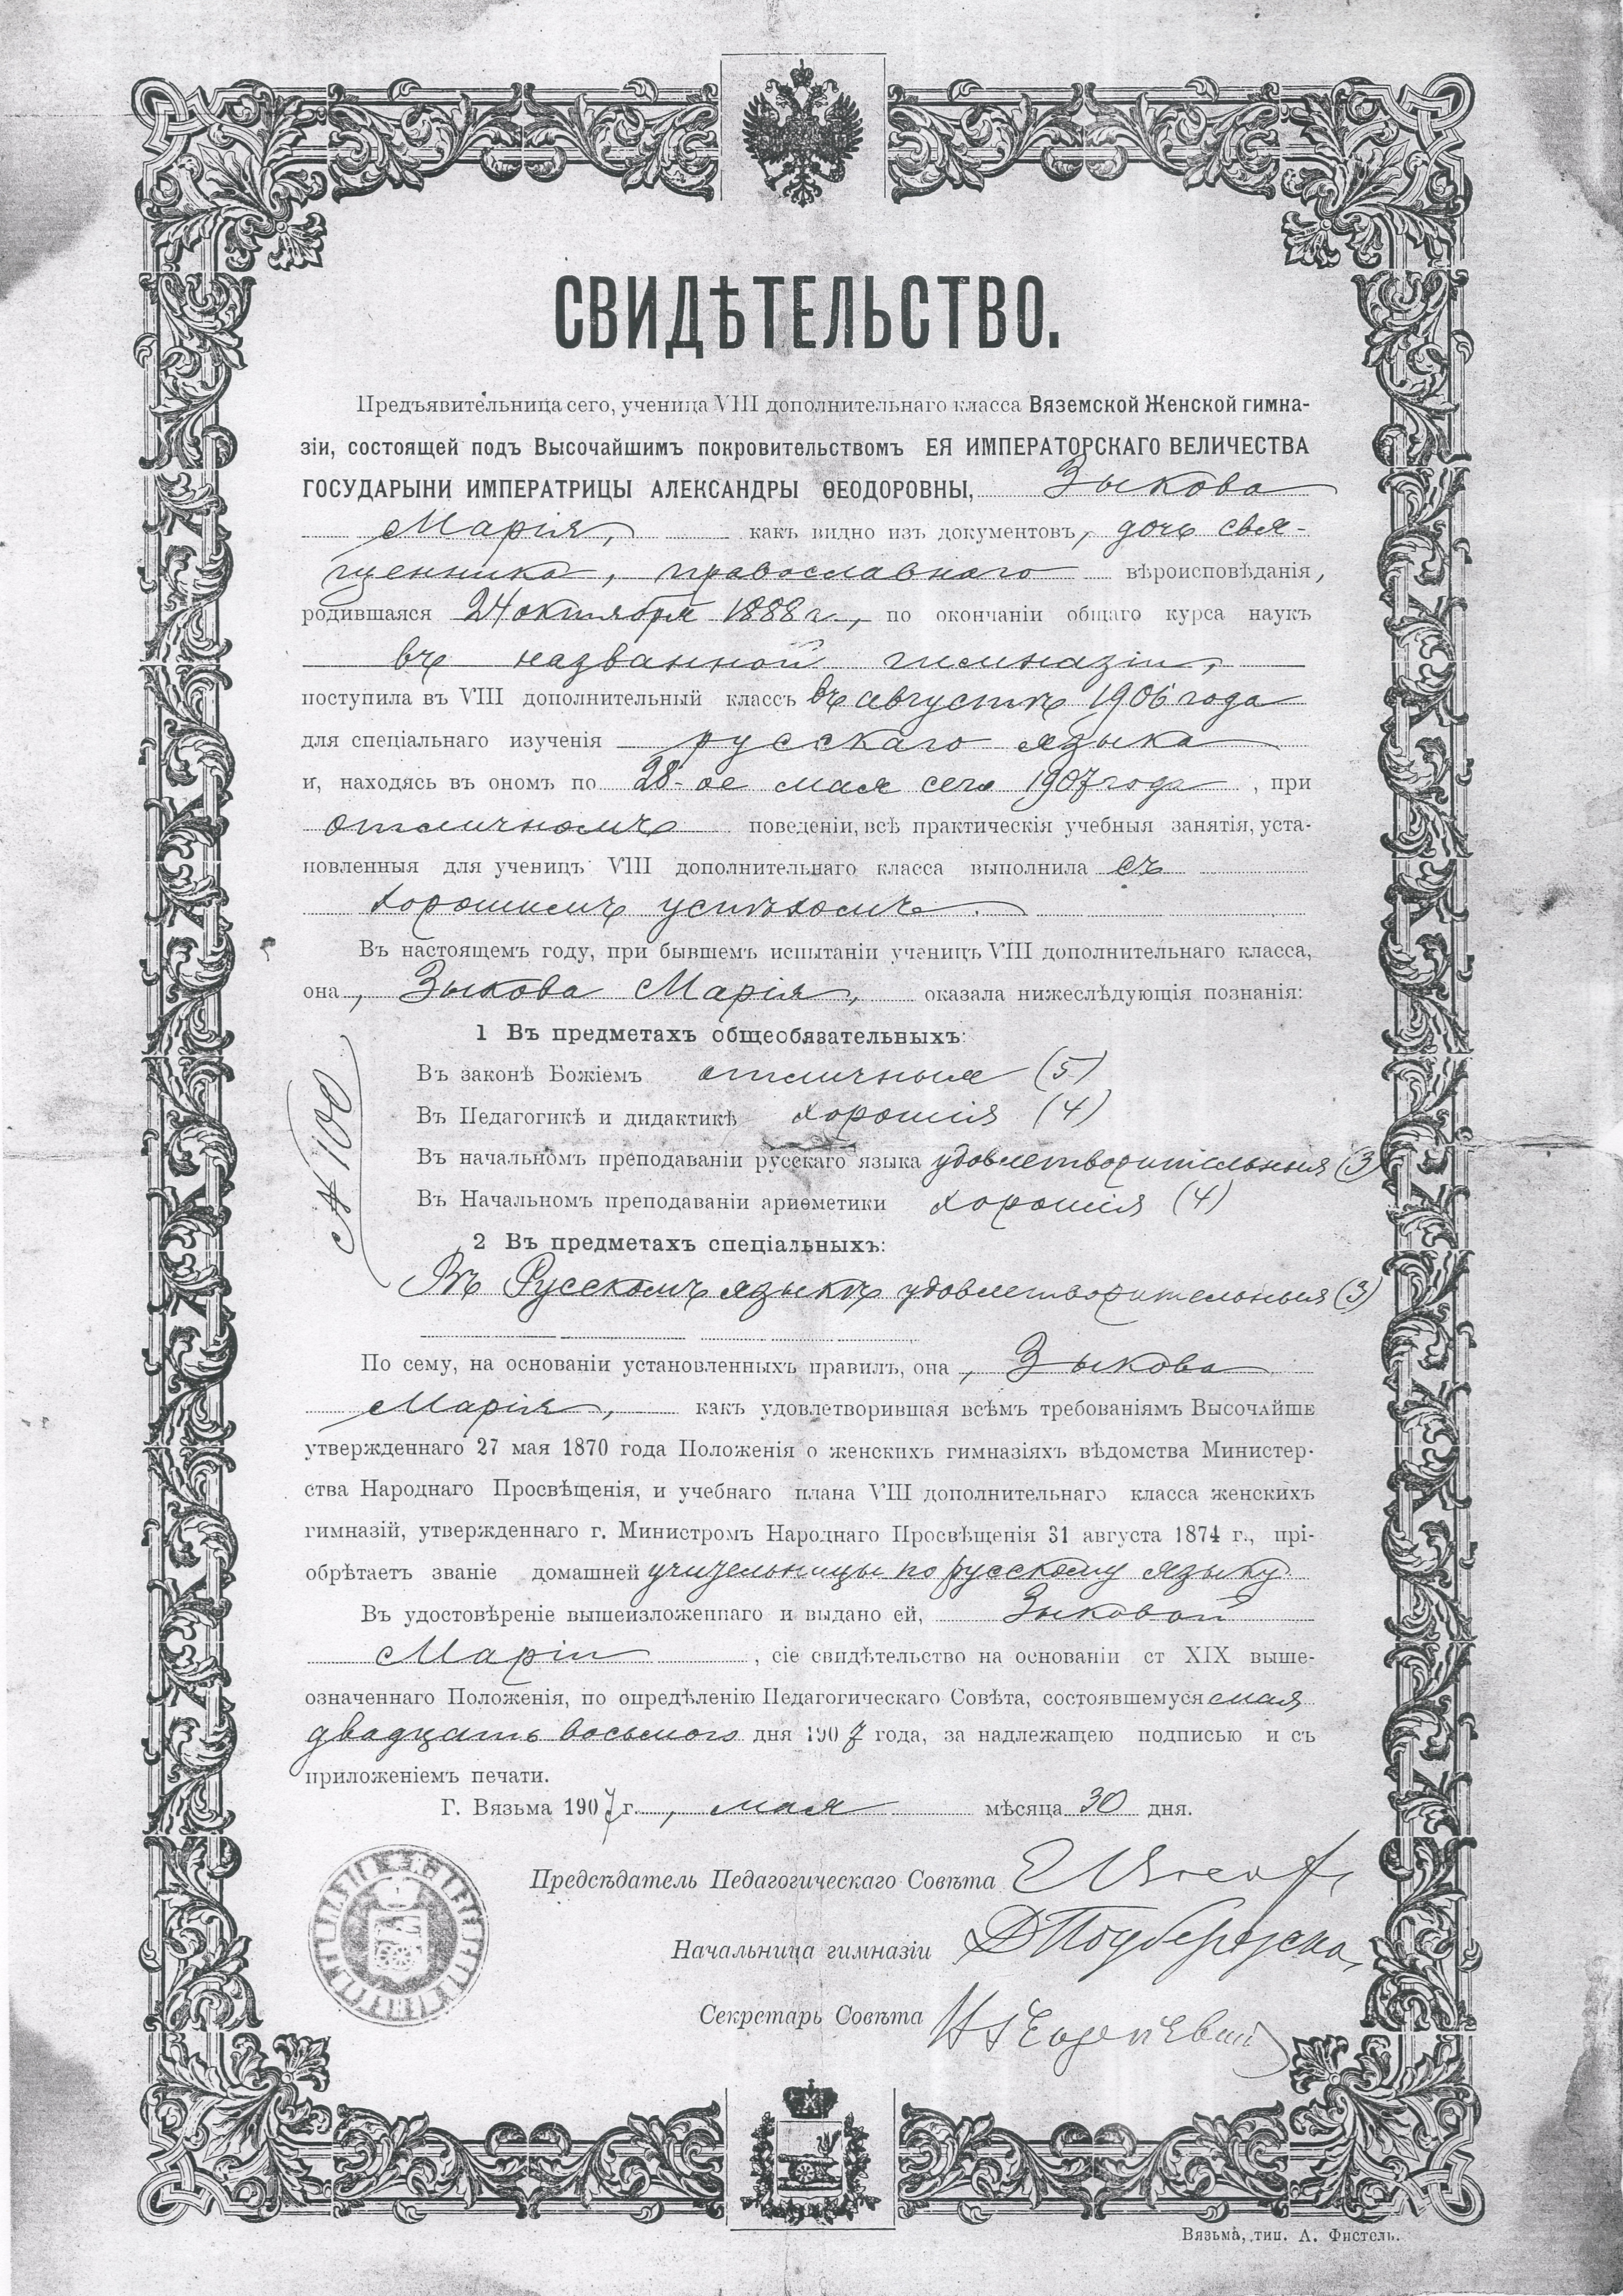 СВИДѢТЕЛЬСТВО.
Предъявительница сего, ученица VIII дополнительнаго класса Вяземской Женской гимна-
зіи, состоящей подъ Высочайшимъ покровительствомъ ЕЯ ИМПЕРАТОРСКАГО ВЕЛИЧЕСТВА
ГОСУДАРЫНИ ИМПЕРАТРИЦЫ АЛЕКСАНДРЫ ѲЕОДОРОВНЫ, Зыкова
Марія, какъ видно изъ документовъ, дочь свя-
щенника, православнаго вѣроисповѣданія,
родившаяся 24 октября 1888 г., по окончаніи общаго курса наукъ
въ названной гимназіи,
поступила въ VIII дополнительный классъ въ августѣ 1906 года
для спеціальнаго изученія русскаго языка
и, находясь въ ономъ по 28-ое мая сего 1907 года, при
отличномъ поведеніи, всѣ практическія учебныя занятія, уста-
новленныя для ученицъ VIII дополнительнаго класса выполнила съ
хорошимъ успѣхомъ.
Въ настоящемъ году, при бывшемъ испытаніи ученицъ VIII дополнительнаго класса,
она, Зыкова Марія, оказала нижеслѣдующія познанія:
1 Въ предметахъ общеобязательныхъ:
Въ законѣ Божіемъ отличныя (5)
Въ Педагогикѣ и дидактикѣ хорошія (4)
Въ начальномъ преподаваніи русскаго языка удовлетворительныя (3)
Въ Начальномъ преподаваніи ариѳметики хорошія (4)
№ 100
2 Въ предметахъ спеціальныхъ:
Въ Русскомъ языкѣ удовлетворительныя (3)
По сему, на основаніи установленныхъ правилъ, она, Зыкова
Марія, какъ удовлетворившая всѣмъ требованіямъ Высочайше
утвержденнаго 27 мая 1870 года Положенія о женскихъ гимназіяхъ вѣдомства Министер-
ства Народнаго Просвѣщенія, и учебнаго плана VIII дополнительнаго класса женскихъ
гимназій, утвержденнаго г. Министромъ Народнаго Просвѣщенія 31 августа 1874 г., прі-
обрѣтаетъ званіе домашней учительницы по русскому языку
Въ удостовѣреніе вышеизложеннаго и выдано ей, Зыковой
Маріи, сіе свидѣтельство на основаніи ст XIX выше-
означеннаго Положенія, по опредѣленію Педагогическаго Совѣта, состоявшемуся мая
двадцать восьмого дня 1907 года, за надлежащею подписью и съ
приложеніемъ печати.
Г. Вязьма 1907 г., мая мѣсяца 30 дня.
Предсѣдатель Педагогическаго Совѣта
Начальница гимназіи
Секретарь Совѣта
Вязьма, тип. А. Фистель.